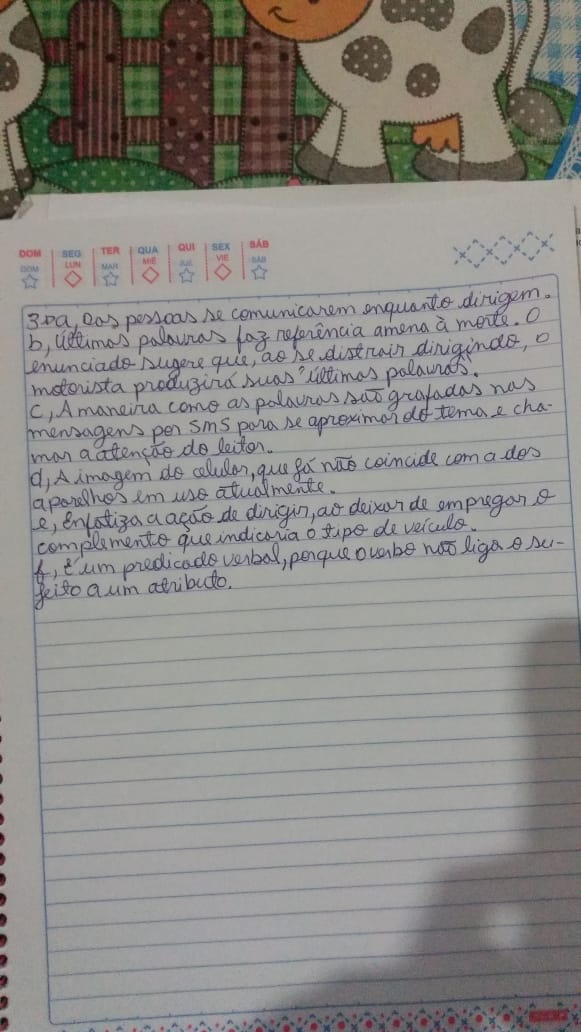 DOM SEG TER QUA QUI SEX SÁB
DOM LUN MAR MIÉ JUE VIE SÁB
3-a, Das pessoas se comunicarem enquanto dirigem.
b, Últimas palavras faz referência amena à morte. O
enunciado sugere que, ao se distrair dirigindo, o
motorista produzirá suas "últimas palavras.
C, A maneira como as palavras são grafadas nas
mensagens por SMS para se aproximar do tema e cha-
mar a atenção do leitor.
d, A imagem do celular, que já não coincide com a dos
aparelhos em uso atualmente.
e, Enfatiza a ação de dirigir, ao deixar de empregar o
complemento que indicaria o tipo de veículo.
f, É um predicado verbal, porque o verbo não liga o su-
jeito a um atributo.